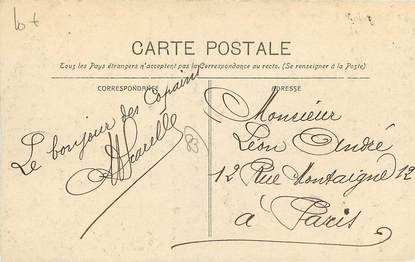 CARTE POSTALE
Tous les Pays étrangers n'acceptent pas la Correspondance au recto. (Se renseigner à la Poste)
CORRESPONDANCE
Le bonjour des Copains
83
ADRESSE
Monsieur
Léon André
12 Rue Montaigne 12
à Paris